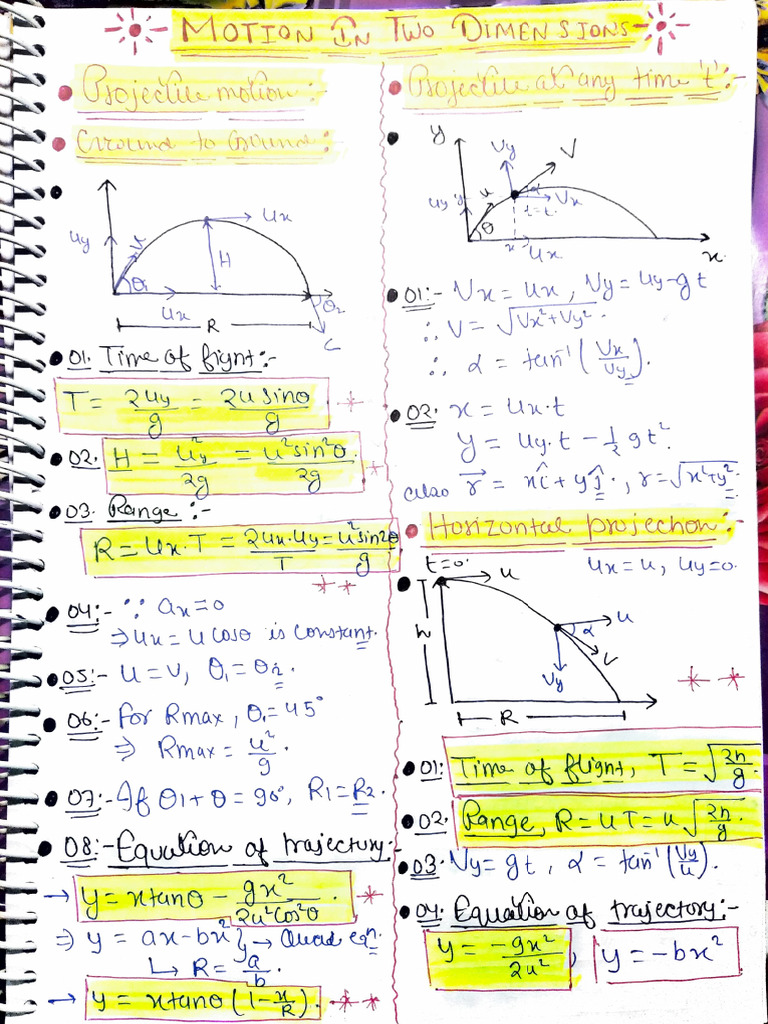 MOTION IN TWO DIMENSIONS
Projectile motion:-
Ground to Ground:-
uy
u
θ1
ux
H
ux
R
θ2
01. Time of flight:-
T = 2uy/g = 2u sinθ/g
02. H = uy²/2g = u²sin²θ/2g
03. Range:-
R = ux.T = 2ux.uy/T = u²sin2θ/g
04:- ∵ ax = 0
⇒ ux = u cosθ is constant.
05:- u = v, θ1 = θ2.
06:- for Rmax, θ1 = 45°
⇒ Rmax = u²/g.
07:- If θ1 + θ = 90°, R1 = R2.
08:- Equation of trajectory:-
→ y = x tanθ - gx²/2u²cos²θ.
⇒ y = ax - bx²} → Quad eqn.
↳ R = a/b.
→ y = x tanθ (1 - x/R).
Projectile at any time 't':-
y
Vy
V
α
Vx
uy
y
u
θ
t=t.
x
ux
x
01:- Vx = ux, Vy = uy - gt
∴ V = √Vx² + Vy².
∴ α = tan⁻¹(Vx/Vy).
02. x = ux.t
y = uy.t - ½ gt²
also r⃗ = xî + yĵ., r = √x² + y².
Horizontal projection:-
t=0.
u
ux = u, uy = 0.
h
u
α
V
Vy
R
01: Time of flight, T = √2h/g.
02. Range, R = uT = u√2h/g.
03. Vy = gt, α = tan⁻¹(Vy/u).
04: Equation of trajectory:-
y = -gx²/2u², y = -bx²